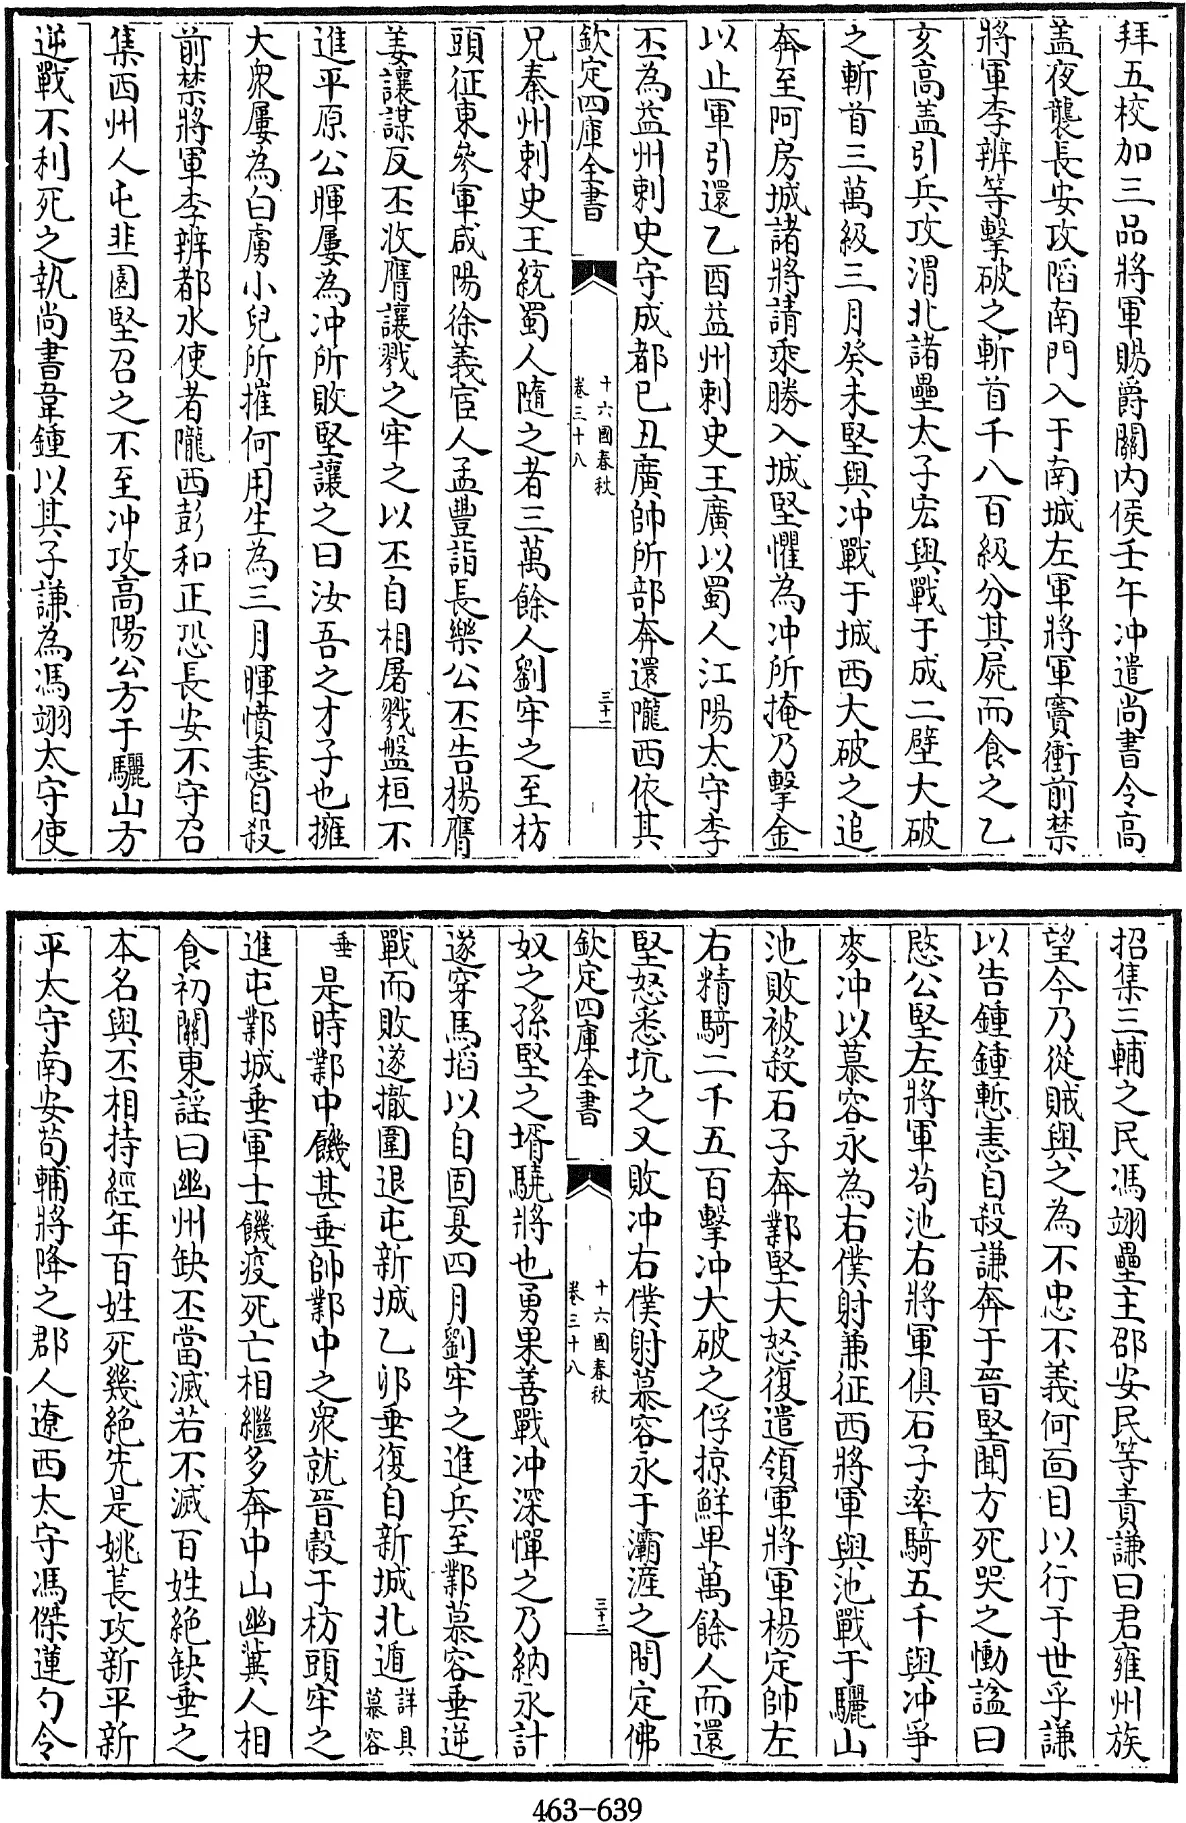 拜五校加三品將軍賜爵關内侯壬午冲遣尚書令高
盖夜襲長安攻陷南門入于南城左軍將軍竇衝前禁
將軍李辨等擊破之斬首千八百級分其屍而食之乙
亥高盖引兵攻渭北諸壘太子宏與戰于成二壁大破
之斬首三萬級三月癸未堅與冲戰于城西大破之追
奔至阿房城諸將請乘勝入城堅懼為冲所掩乃擊金
以止軍引還乙酉益州刺史王廣以蜀人江陽太守李
丕為益州刺史守成都已丑廣帥所部奔還隴西依其
欽定四庫全書
十六國春秋
卷三十八
三十一
兄秦州刺史王統蜀人隨之者三萬餘人劉牢之至枋
頭征東參軍咸陽徐義宦人孟豐詣長樂公丕告楊膺
姜讓謀反丕收膺讓戮之牢之以丕自相屠戮盤桓不
進平原公暉屢為冲所敗堅讓之曰汝吾之才子也擁
大衆屢為白虜小兒所摧何用生為三月暉憤恚自殺
前禁將軍李辨都水使者隴西彭和正恐長安不守召
集西州人屯韭園堅召之不至冲攻高陽公方于驪山方
逆戰不利死之執尚書韋鍾以其子謙為馮翊太守使
招集三輔之民馮翊壘主邵安民等責謙曰君雍州族
望今乃從賊與之為不忠不義何面目以行于世乎謙
以告鍾鍾慙恚自殺謙奔于晉堅聞方死哭之慟諡曰
愍公堅左將軍苟池右將軍俱石子率騎五千與冲爭
麥冲以慕容永為右僕射兼征西將軍與池戰于驪山
池敗被殺石子奔鄴堅大怒復遣領軍將軍楊定帥左
右精騎二千五百擊冲大破之俘掠鮮卑萬餘人而還
堅怒悉坑之又敗冲右僕射慕容永于灞滻之間定佛
欽定四庫全書
十六國春秋
卷三十八
三十二
奴之孫堅之壻驍將也勇果善戰冲深憚之乃納永計
遂穿馬埳以自固夏四月劉牢之進兵至鄴慕容垂逆
戰而敗遂撤圍退屯新城乙卯垂復自新城北遁詳具慕容
垂 是時鄴中饑甚垂帥鄴中之衆就晉穀于枋頭牢之
進屯鄴城垂軍士饑疫死亡相繼多奔中山幽冀人相
食初關東謡曰幽州䦼丕當滅若不滅百姓絶䦼垂之
本名與丕相持經年百姓死幾絶先是姚萇攻新平新
平太守南安苟輔將降之郡人遼西太守馮傑蓮勺令
463-639